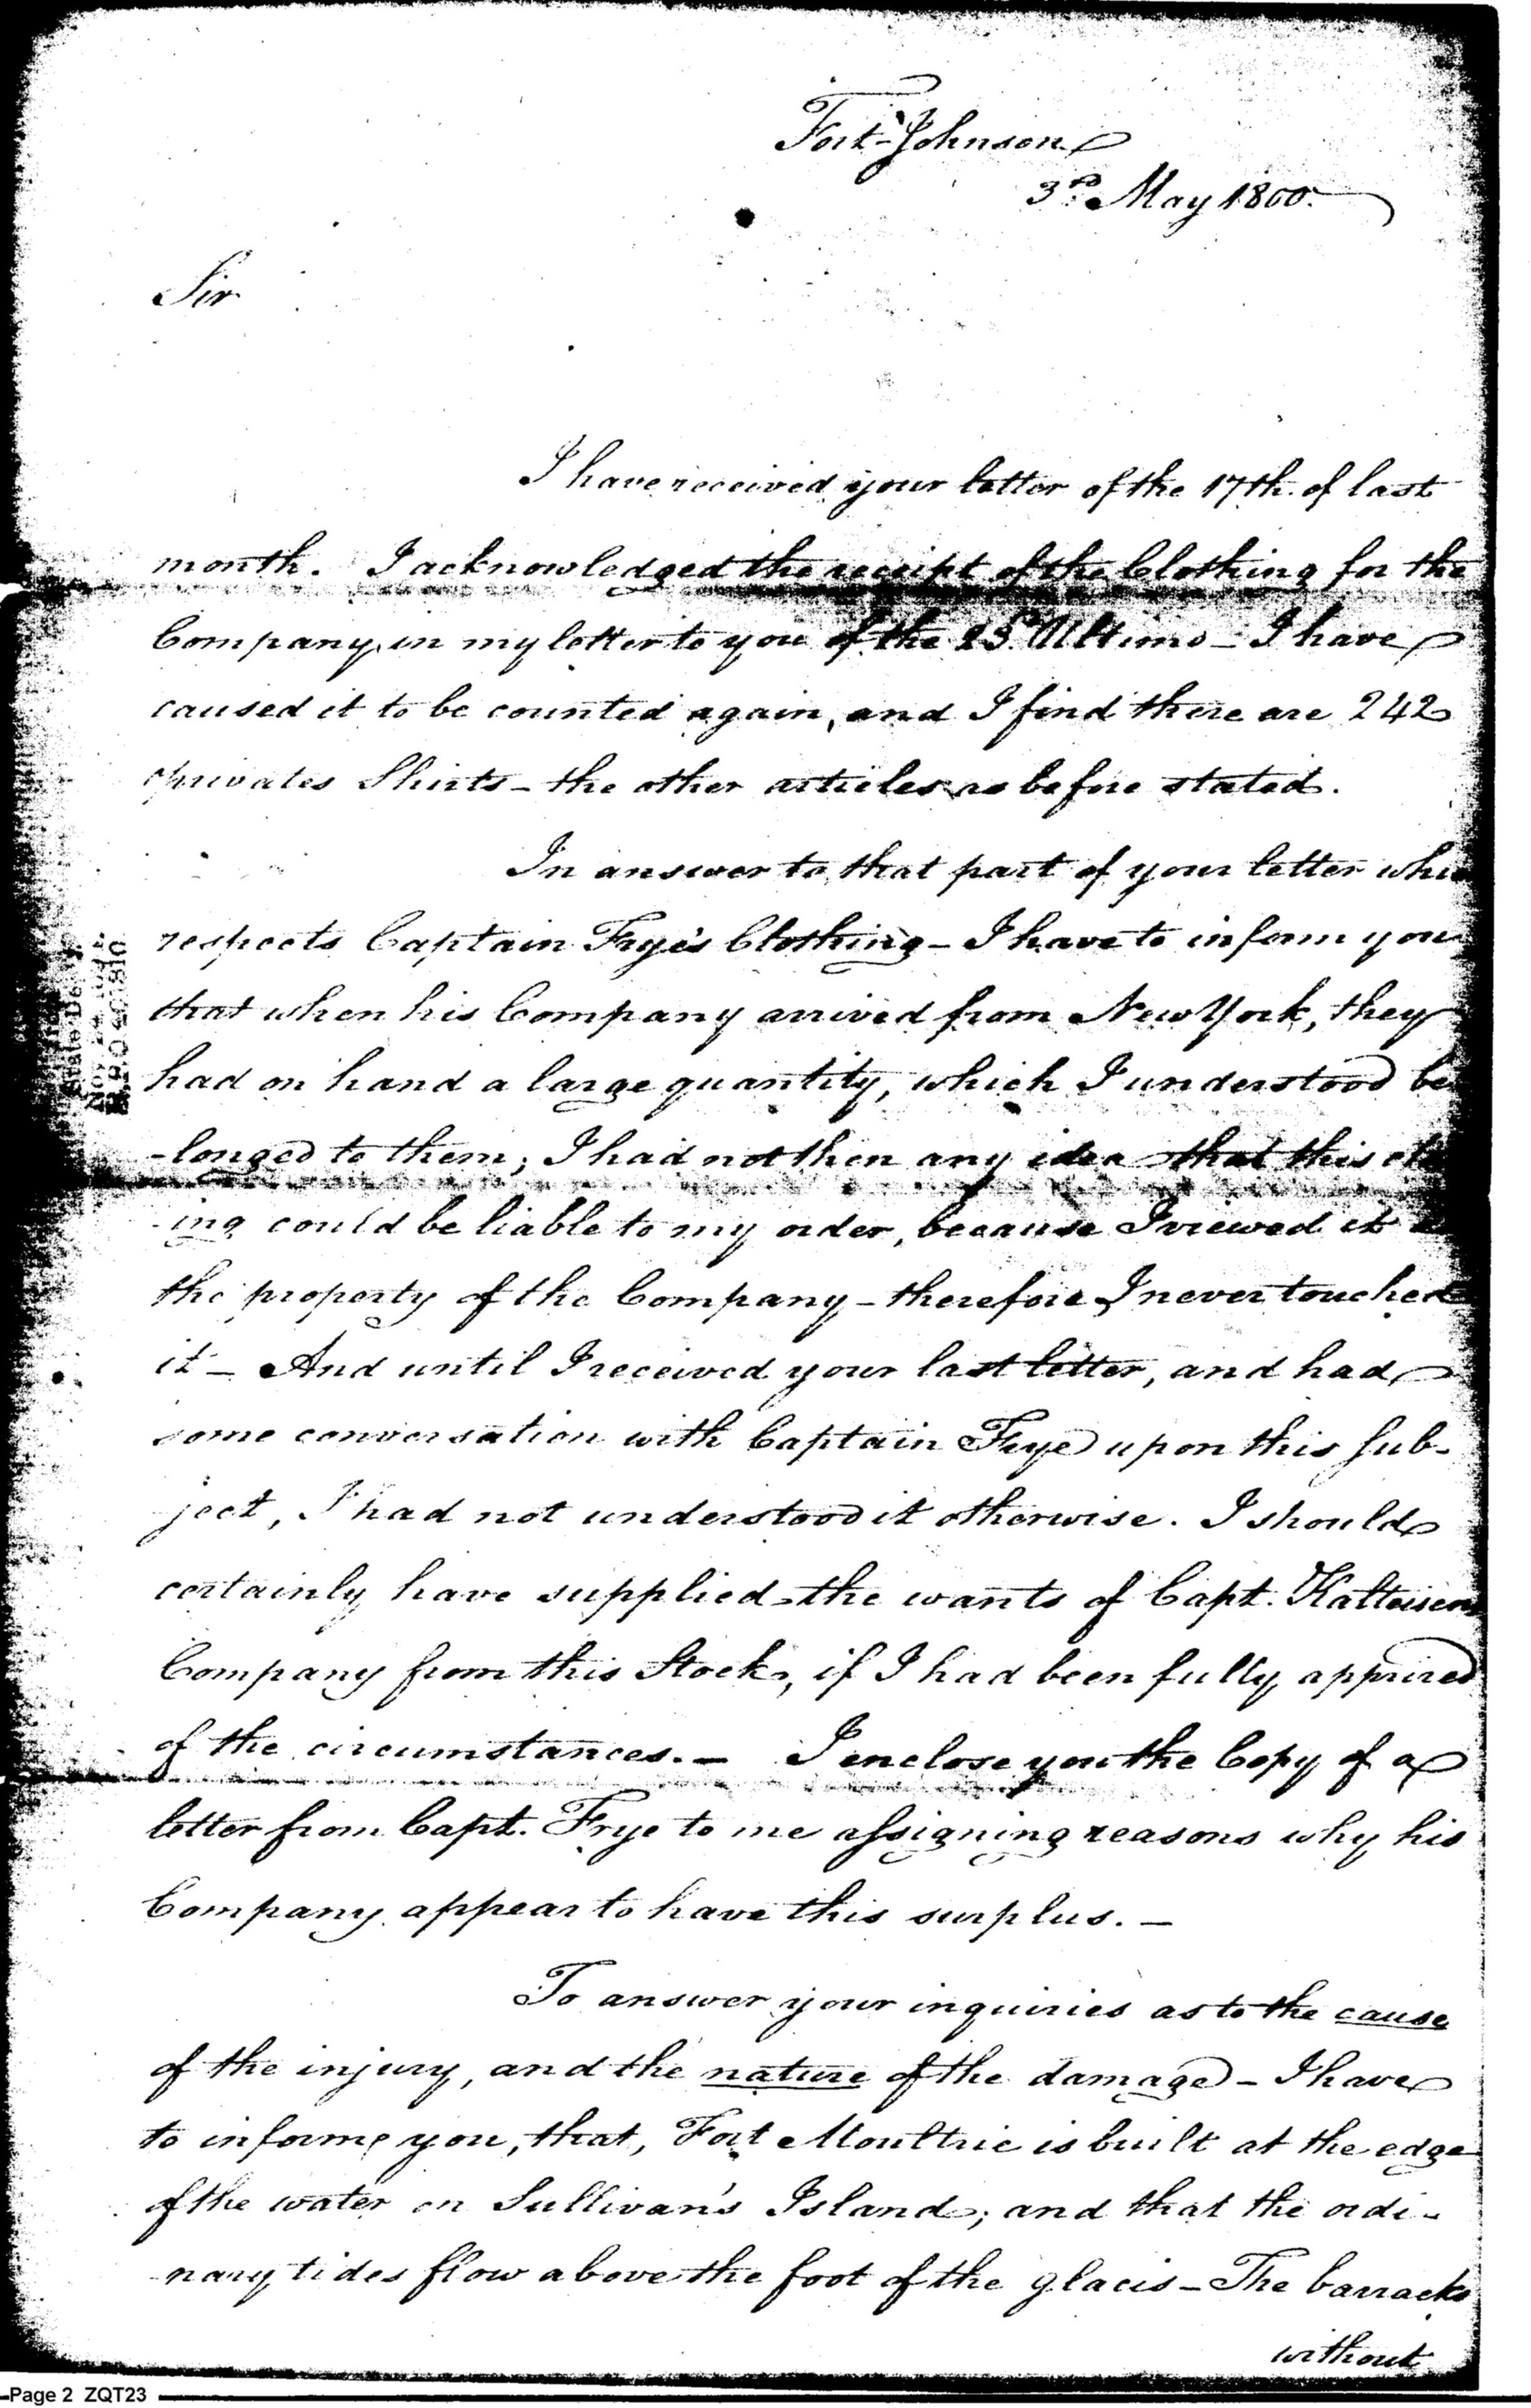 Fort-Johnson
3rd May 1800.
Sir
I have received your letter of the 17th. of last
month. I acknowledged the receipt of the Clothing for the
Company, in my letter to you of the 23rd Ultimo - I have
caused it to be counted again, and I find there are 242
privates Shirts - the other articles as before stated.
In answer to that part of your letter whi
respects Captain Frye's Clothing - I have to inform you
that when his Company arrived from New York, they
had on hand a large quantity, which I understood be
-longed to them; I had not then any idea that this clo
ing could be liable to my order, because I viewed it
the property of the Company - therefore I never touched
it - And until I received your last letter, and had
some conversation with Captain Frye upon this sub-
ject, I had not understood it otherwise. I should
certainly have supplied the wants of Capt. Kalteisens
Company from this Stock, if I had been fully apprised
of the circumstances. - I enclose you the Copy of a
letter from Capt. Frye to me assigning reasons why his
Company appear to have this surplus. -
To answer your inquiries as to the cause
of the injury, and the nature of the damage - I have
to inform you, that, Fort Moultrie is built at the edge
of the water on Sullivan's Island; and that the ordi-
nary tides flow above the foot of the glacis - The barracks
without
Page 2 ZQT23